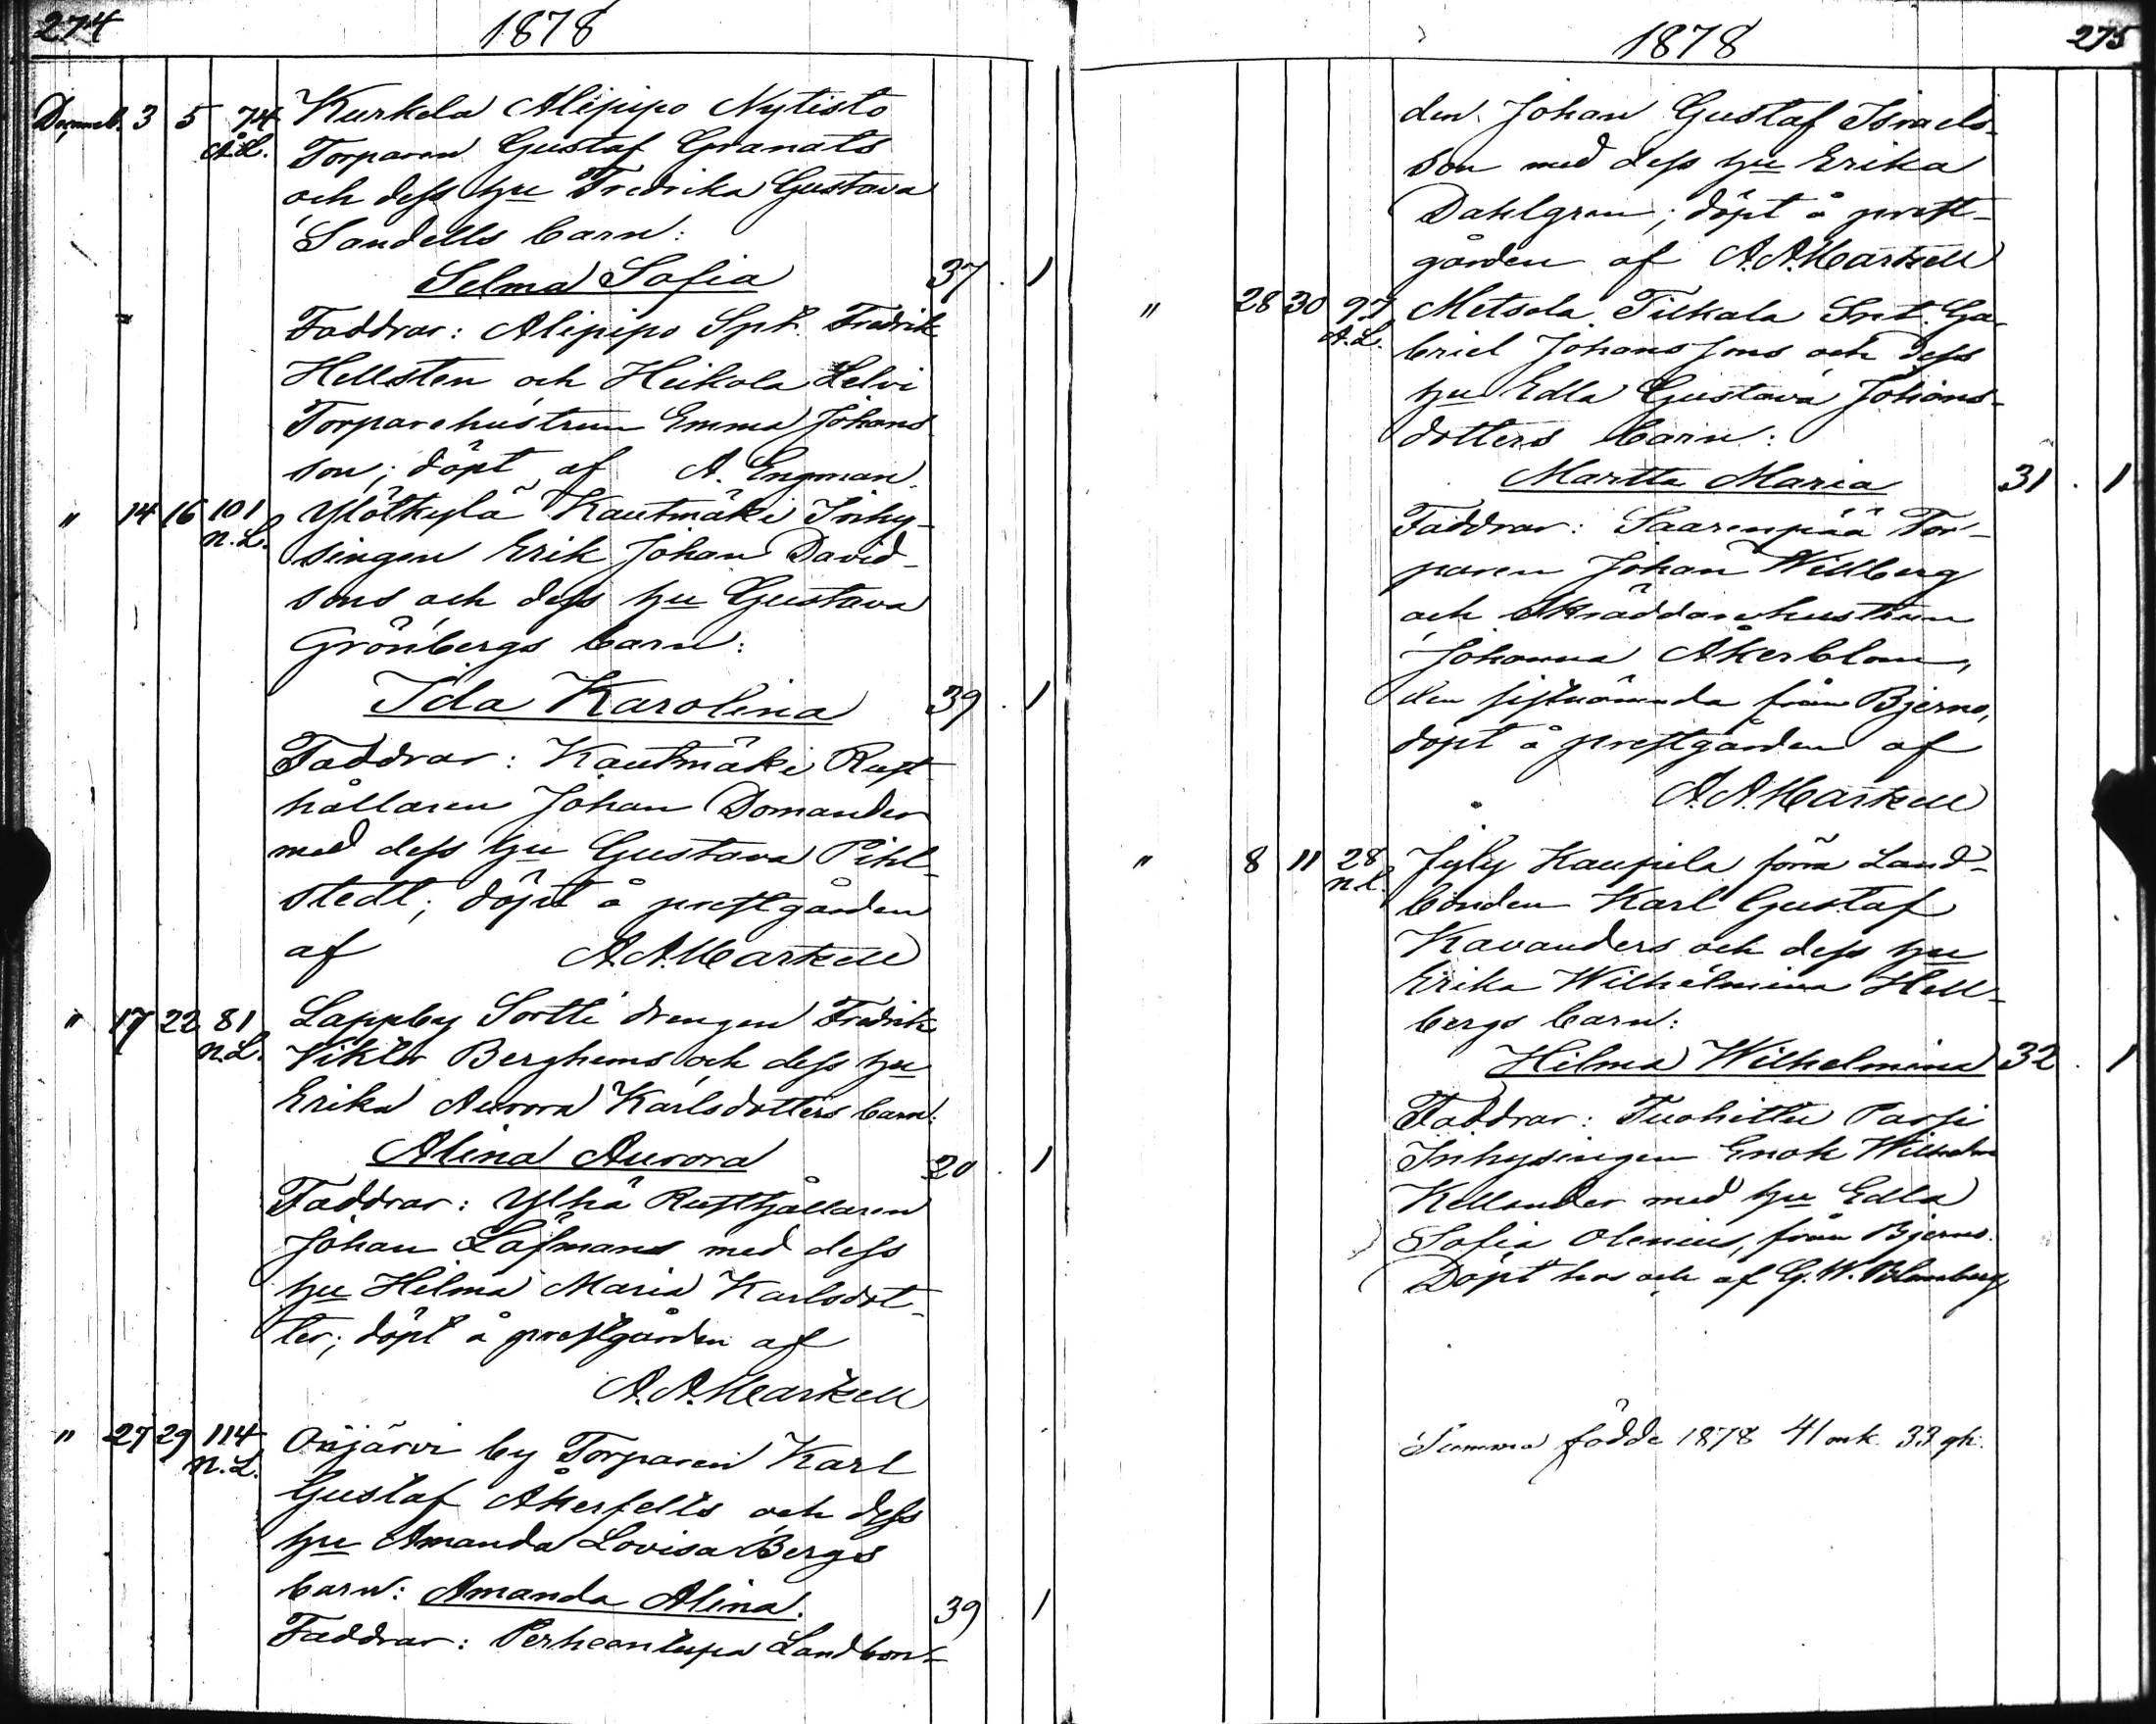 274
1878
Decemb. 3 5 74 Kurkela Alipipo Nytisto
A.L. Torparen Gustaf Granats
och dess hu Fredrika Gustava
Sandells barn:
Selma Sofia 37 . 1
Faddrar: Alipipo Spk. Fredrik
Hellsten och Heikola Lelvi
Torparehustrun Emma Johans
son; döpt af A. Engman.
" 14 16 101 Ylötkylä Kautmäki Inhy-
N.L. singen Erik Johan David-
sons och dess hu Gustava
Grönbergs barn:
Ida Karolina 39 . 1
Faddrar: Kautmäki Rust
hållaren Johan Domander
med dess hu Gustava Pihl-
stedt; döpt å prestgården
af A. A. Markell
" 17 22 81 Lappby Sortti drengen Fredrik
N.L. Viktor Berghems och dess hu
Erika Aurora Karlsdotters barn:
Alina Aurora 20 . 1
Faddrar: Ylhä Rusthållaren
Johan Löfmans med dess
hu Hilma Maria Karlsdot-
ter; döpt å prestgården af
A. A. Markell
" 27 29 114 Onjärvi by Torparen Karl
N.L. Gustaf Åkerfelts och dess
hu Amanda Lovisa Bergs
barn: Amanda Alina. 39 1
Faddrar: Perheantupa Landbon-
1878
275
den Johan Gustaf Israels-
son med dess hu Erika
Dahlgren; döpt å prest-
gården af A. A. Markell
" 28 30 97 Metsola Tilkala Snt. Ga-
A.L. briel Johanssons och dess
hu Edla Gustava Johans-
dotters barn:
Martta Maria 31 . 1
Faddrar: Saarenpää Tor-
paren Johan Willberg
och Skräddarehustrun
Johanna Åkerblom,
den sistnämnda från Bjerno,
döpt å prestgården af
A. A. Markell
" 8 11 28 Jyly Kaupila förra Land-
N.L. bonden Karl Gustaf
Kavanders och dess hu
Erika Wilhelmina Hell-
bergs barn:
Hilma Wilhelmina 32 . 1
Faddrar: Tuohittu Parsi
Inhysingen Enok Wilhelm
Kellander med hu Edla
Sofia Olenius, från Bjerno.
Döpt hos och af G. W. Blomberg
Summa födde 1878 41 mk. 33 qk.